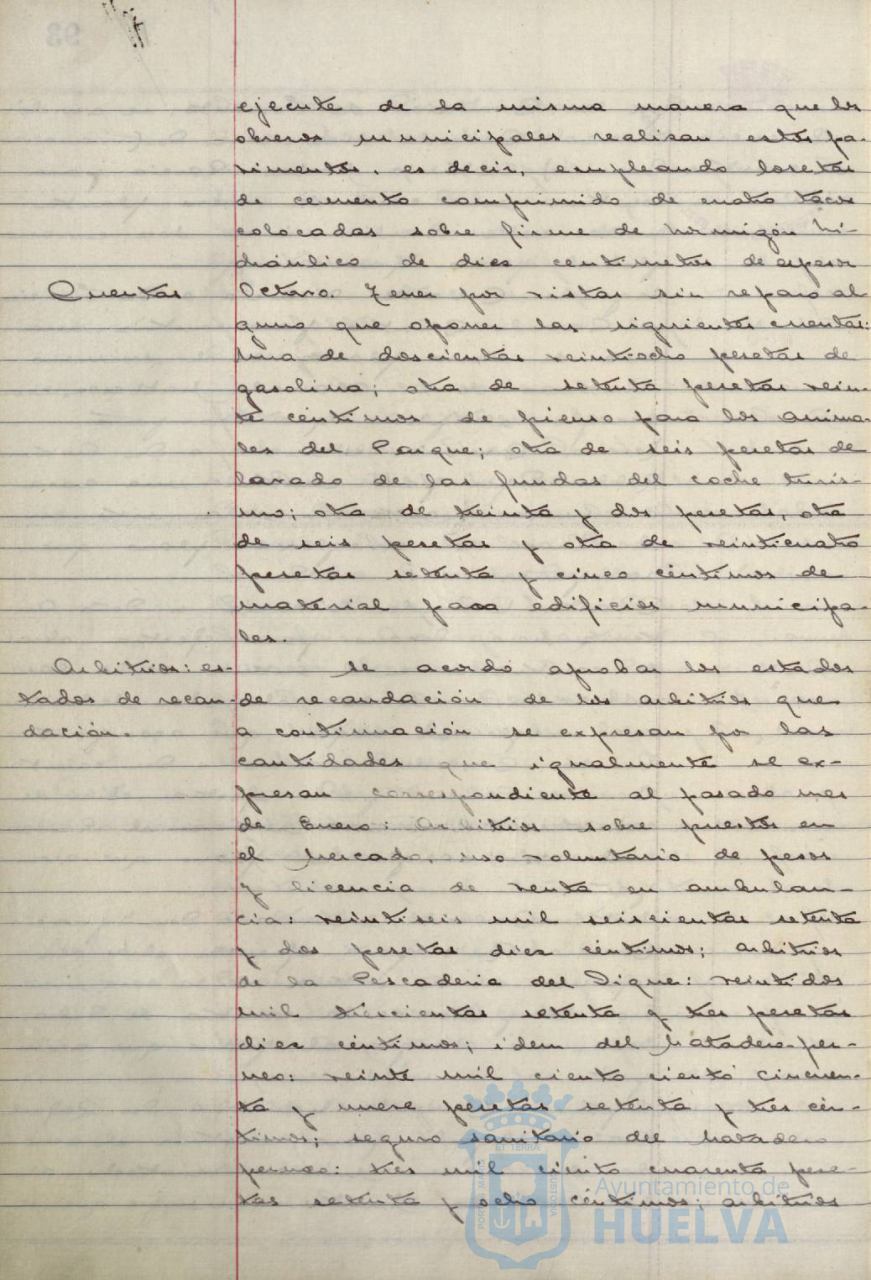 ejecute de la misma manera que los
obreros municipales realisan estos pa-
vimentos, es decir, empleando losetas
de cemento comprimido de cuatro tacos
colocadas sobre firme de hormigón hi-
dráulico de diez centimetros de espesor
Cuentas Octavo. Tener por vistas sin reparo al
guno que oponer las siguientes cuentas:
una de doscientas veintiocho pesetas de
gasolina; otra de setenta pesetas vein-
te céntimos de pienso para los anima-
les del Parque; otra de seis pesetas de
lavado de las fundas del coche turis-
mo; otra de treinta y dos pesetas, otra
de seis pesetas y otra de veinticuatro
pesetas setenta y cinco céntimos de
material para edificios municipa-
les.
Arbitrios: es- Se acordó aprobar los estados
tados de recau- de recaudación de los arbitrios que
dación. a continuación se expresan por las
cantidades que igualmente se ex-
presan correspondiente al pasado mes
de Enero: Arbitrios sobre puestos en
el Mercado, uso voluntario de pesos
y licencia de venta en ambulan-
cia: veintiseis mil seiscientas setenta
y dos pesetas diez céntimos; arbitrios
de la Pescaderia del Dique: veintidos
mil trescientas setenta y tres pesetas
diez céntimos; idem del Matadero-per-
neo: veinte mil ciento ciento cincuen-
ta y nueve pesetas setenta y tres cén-
timos; seguro sanitario del Matadero
perneo: tres mil ciento cuarenta pese-
tas setenta y ocho céntimos; arbitrios
Ayuntamiento de
HUELVA